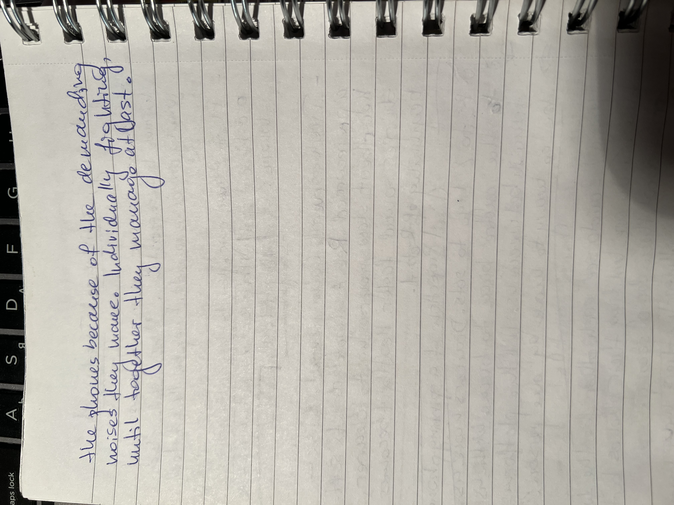 the phones because of the demanding
noises they make. Individually fighting,
until together they manage at last.
A S D F G
aps lock